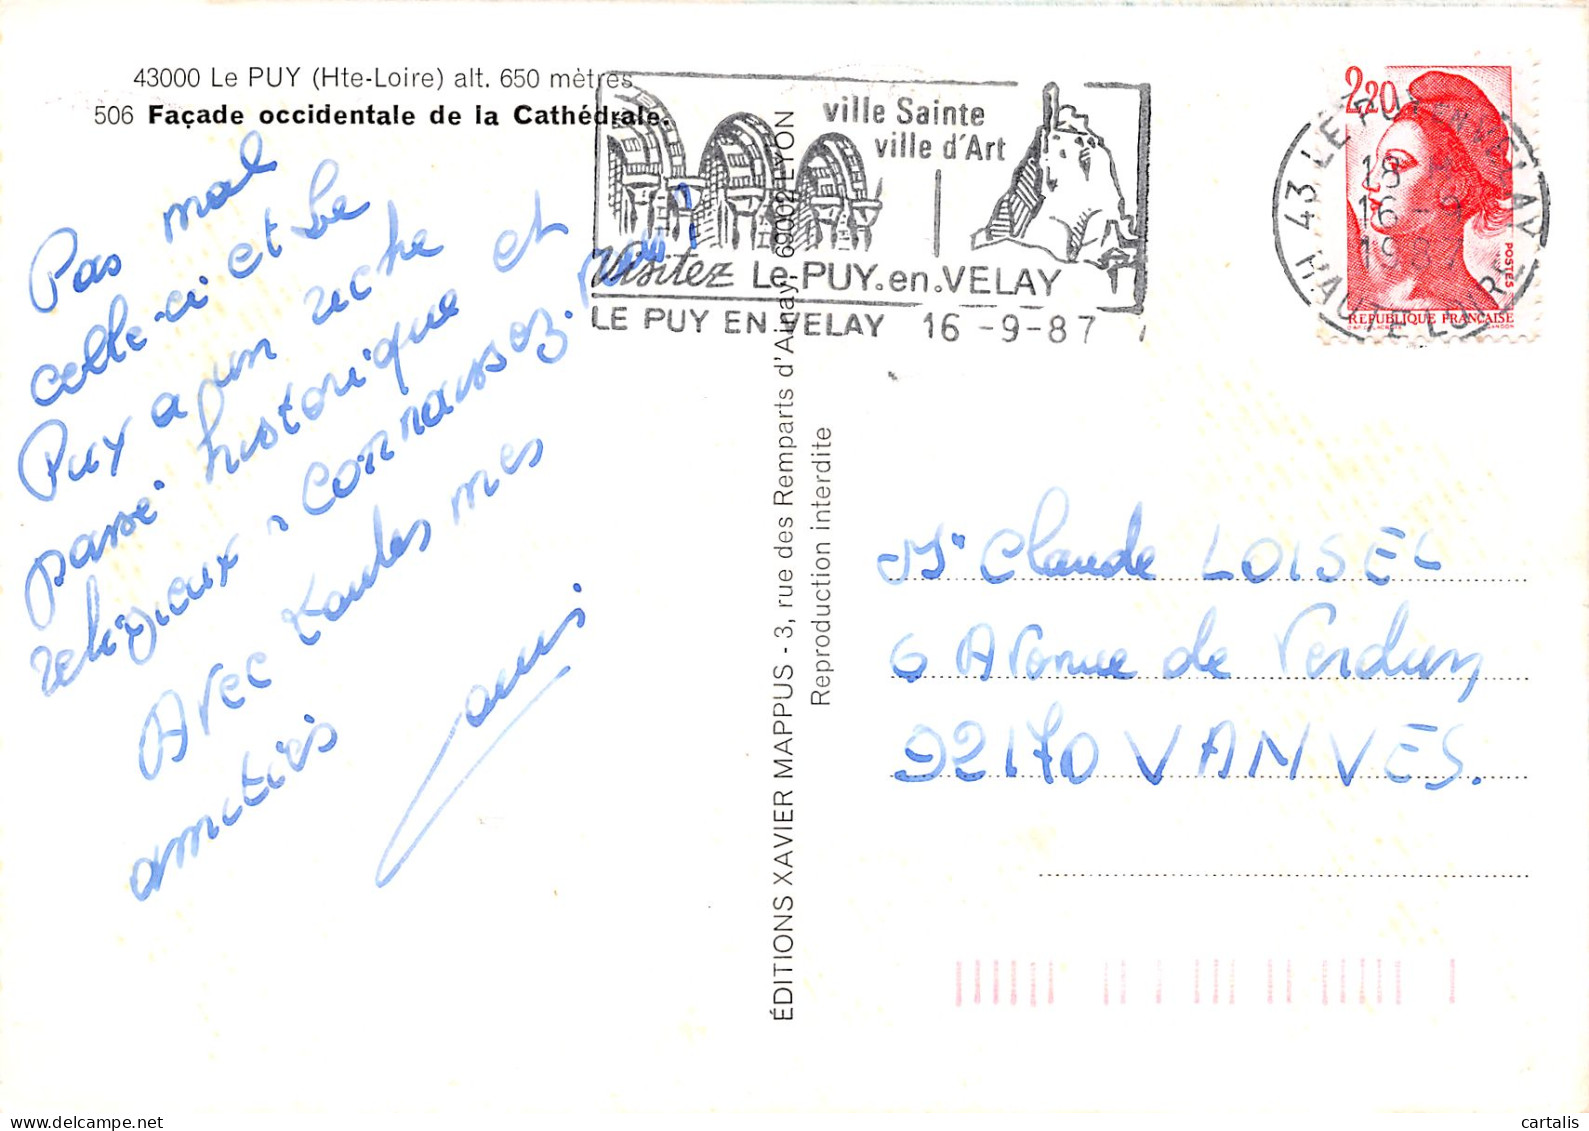 43000 Le PUY (Hte-Loire) alt. 650 mètres
506 Façade occidentale de la Cathédrale.
Pas mal
celle-ci et Le
Puy a un riche
passé historique et
religieux
Avec toutes mes
amitiés
ville Sainte
ville d'Art
Visitez Le PUY.en.VELAY
LE PUY EN VELAY 16 -9-87
2,20
POSTES
REPUBLIQUE FRANÇAISE
43 LE PUY EN VELAY
18 H
16 -9
1987
HAUTE LOIRE
ÉDITIONS XAVIER MAPPUS - 3, rue des Remparts d'Ainay, 69002 LYON
Reproduction interdite
Mr Claude LOISEL
6 Avenue de Verdun
92170 VANVES.
cartalis